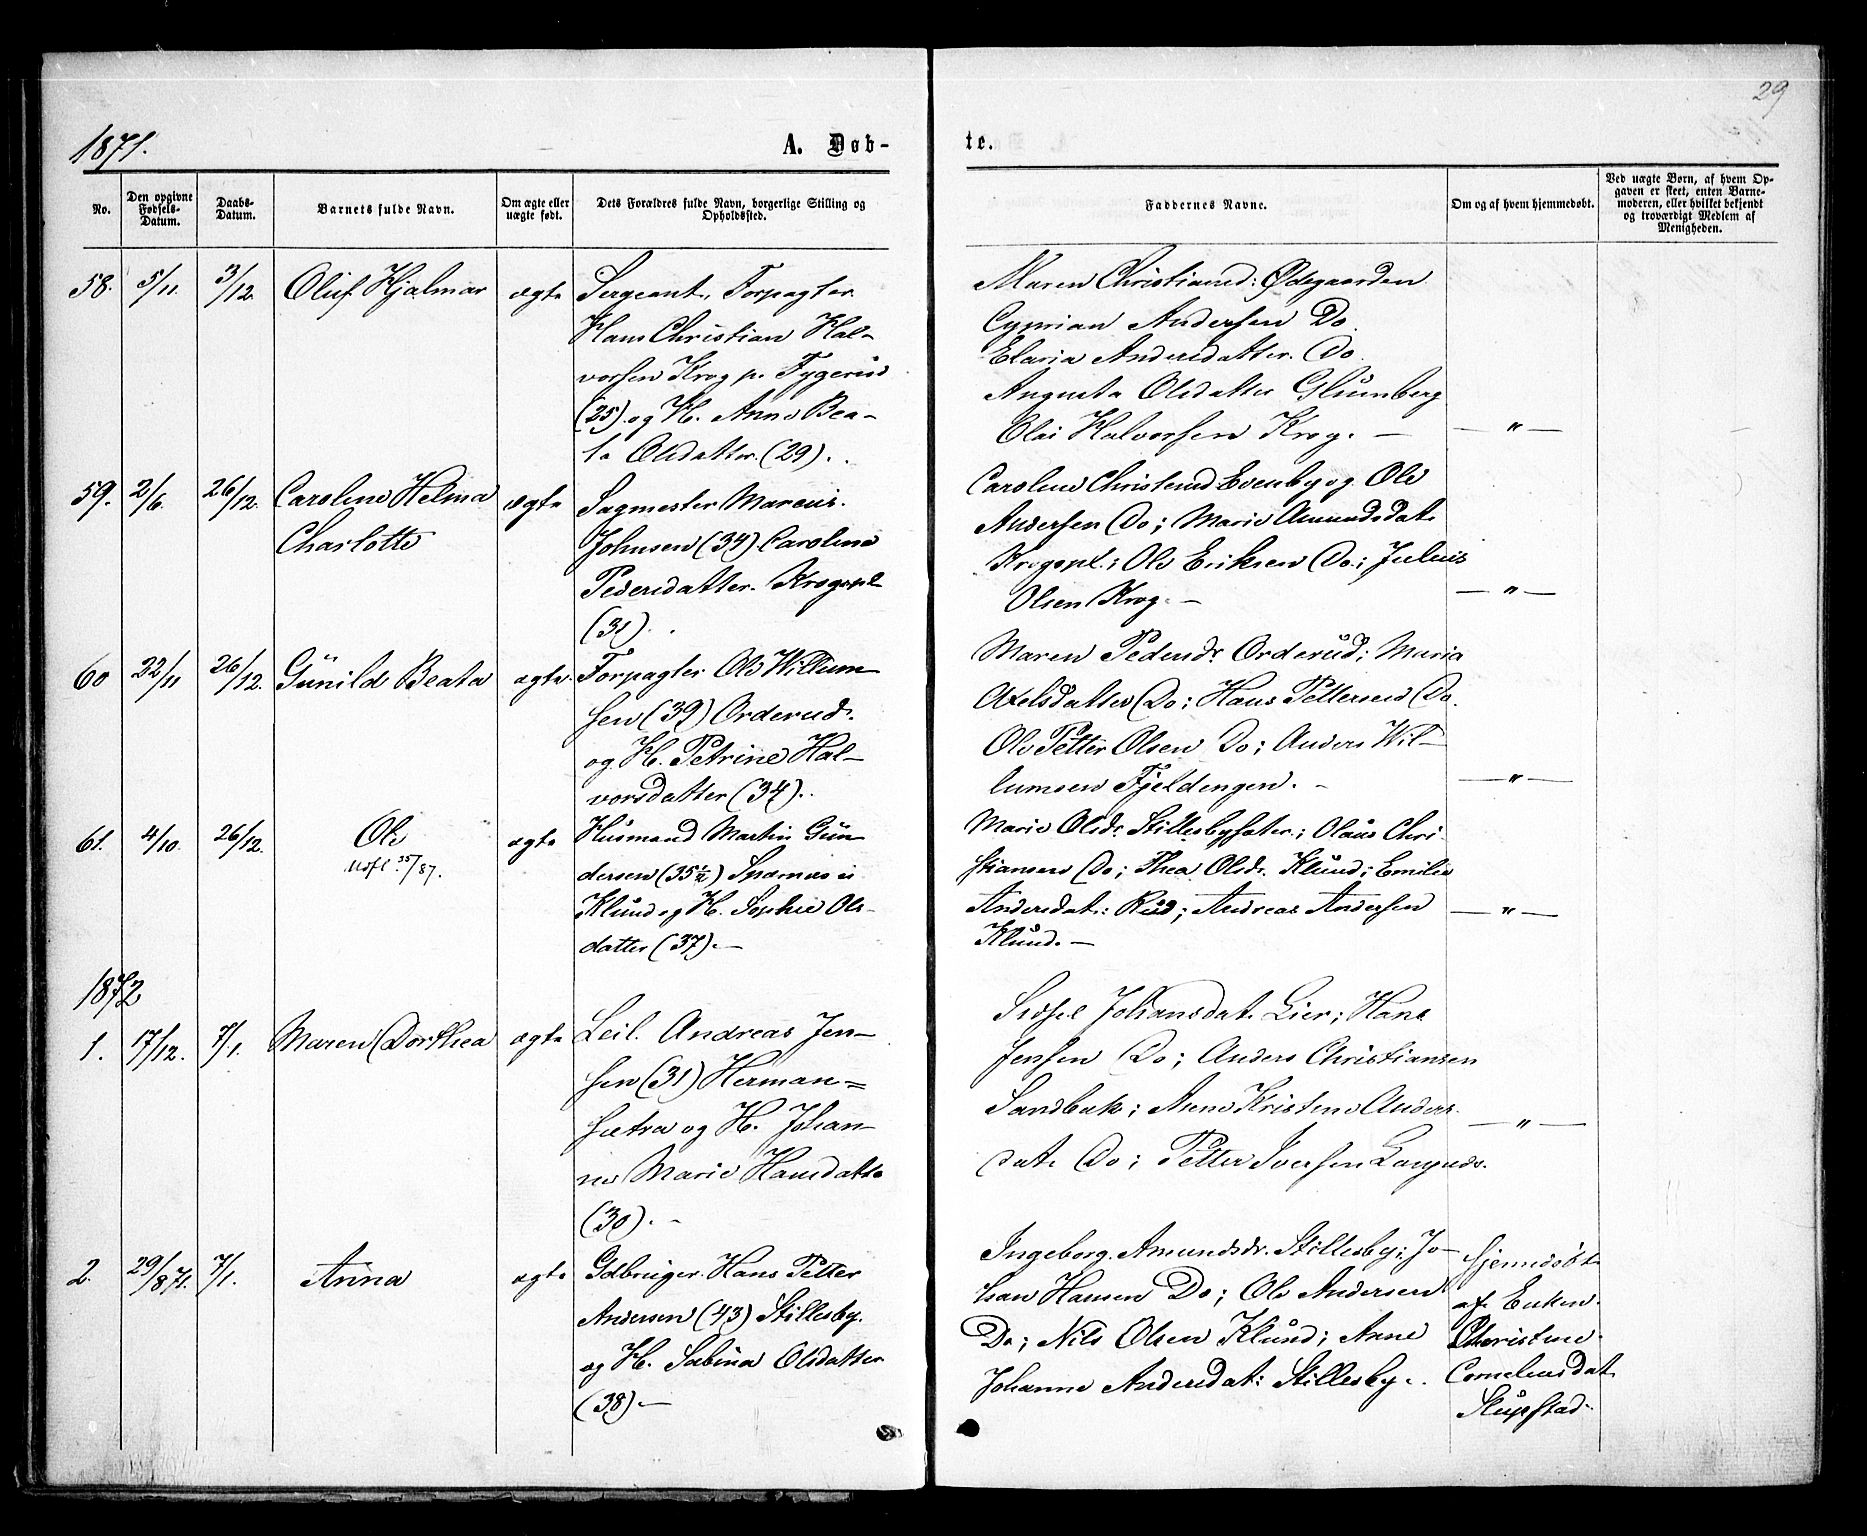 29
1871.
A. Døb-
te.
No.
Den opgivne Fødsels-Datum.
Daabs-Datum.
Barnets fulde Navn.
Om ægte eller uægte født.
Dets Forældres fulde Navn, borgerlige Stilling og Opholdssted.
Faddernes Navne.
Om og af hvem hjemmedøbt.
Ved uægte Børn, af hvem Opgaven er skeet, enten Barnemoderen, eller hvilket bekjendt og troværdigt Medlem af Menigheden.
58. 5/11. 3/12. Oluf Hjalmar ægte Sergeant, Forpagter
Hans Christian Hal-
vorsen Krog p. Tygerud
(25) og H. Anne Bea-
te Olsdatter. (29).
Maren Christiansd: Ødegaarden
Cyprian Andersen Do
Elaria Andersdatter. Do.
Augusta Olsdatter Glumberg
Olai Halvorsen Krog. —
— " —
59. 2/6. 26/12. Caroline Helma
Charlotte
ægte Sagmester Marcus
Johnsen (34) Caroline
Pedersdatter. Krogspl
(31).
Caroline Christensd Evenby og Ole
Andersen Do; Marie Amundsdat.
Krogspl.; Ole Eriksen Do.; Julius
Olsen Krog. —
— " —
60 22/11 26/12. Gunild Beata ægte. Forpagter Ole Willum-
sen (39) Orderud.
og H. Petrine Hal-
vorsdatter (34).
Maren Pedersdr. Orderud; Maria
Axelsdatter Do; Hans Pettersen Do.
Ole Petter Olsen Do; Anders Wil-
lumsen Fjeldengen. -
— " —
61. 4/10. 26/12. Ole
Udfl 35/87.
ægte Husmand Martin Gun
dersen (35½) Snarnæs i
Klund og H. Sophie Ols-
datter (37). —
Marie Olsdr. Stillesbysæter; Olaus Chri-
stiansen Do; Thea Olsdr. Klund; Emilie
Andersdat: Rud; Andreas Andersen
Klund. —
— " —
1872
1. 17/12. 7/1. Maren Dorthea ægte Leil. Andreas Jen-
sen (31) Herman=
sætra og H. Johan-
ne Marie Hansdatte
(30). -
Sidsel Johansdat. Lier; Hans
Jensen Do; Anders Christiansen
Sandbak; Anne Kristine Anders-
dat. Do; Petter Iversen
— " —
2. 29/8 71. 7/1. Anna ægte Gdbruger. Hans Petter
Andersen (43) Stillesby.
og H. Sabina Olsdatter
(38). —
Ingeborg Amundsdr. Stillesby; Jo-
han Hansen Do; Ole Andersen
Do; Nils Olsen Klund; Anne
Johanne Andersdat: Stillesby.
hjemmedøbt
af Enken
Christine
Corneliusdat
Skupstad.